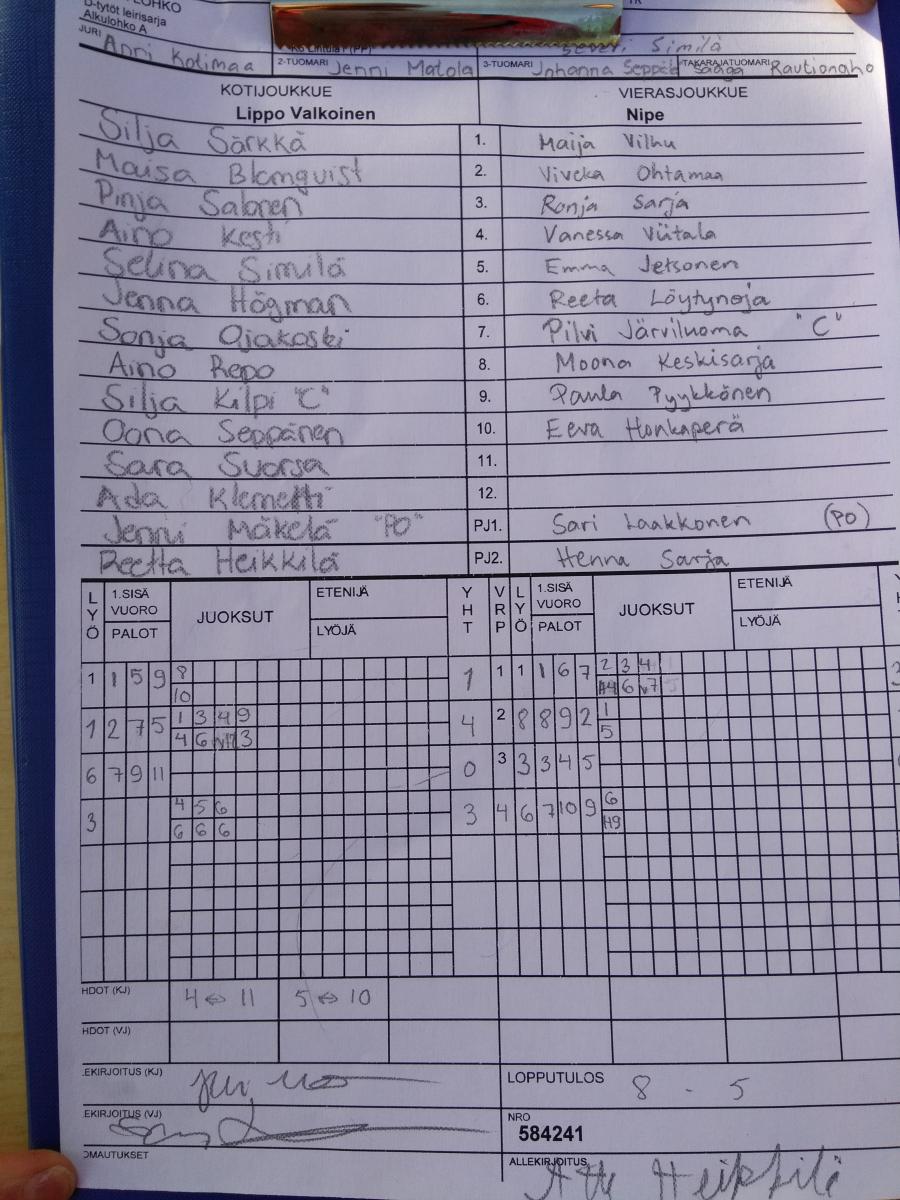 D-tytöt leirisarja
Alkulohko A
Simila
JURI Anni Kotimaa 2-TUOMARI Jenni Matola 3-TUOMARI Johanna Seppälä TAKARAJATUOMARI Saaga Rautionaho
KOTIJOUKKUE VIERASJOUKKUE
Lippo Valkoinen Nipe
Silja Särkkä 1. Maija Vilhu
Maisa Blomqvist 2. Viveka Ohtamaa
Pinja Salonen 3. Ronja Sarja
Aino Kesti 4. Vanessa Viitala
Selina Similä 5. Emma Jetsonen
Jenna Högman 6. Reeta Löytynoja
Sonja Ojakoski 7. Pilvi Järviluoma "C"
Aino Repo 8. Moona Keskisarja
Silja Kilpi "C" 9. Paula Pyykkönen
Oona Seppänen 10. Eeva Honkaperä
Sara Suorsa 11.
Ada Klemetti 12.
Jenni Mäkelä "PO" PJ1. Sari Laakkonen (PO)
Reetta Heikkilä PJ2. Henna Sarja
LYÖ 1.SISÄ VUORO PALOT JUOKSUT ETENIJÄ LYÖJÄ YHT VRP LYÖ 1.SISÄ VUORO PALOT JUOKSUT ETENIJÄ LYÖJÄ
1 1 5 9 8 1 1 1 1 6 7 2 3 4
10 6 v7
1 2 7 5 1 3 4 9 4 2 8 8 9 2 1
4 6 3 5
6 7 9 11 0 3 3 3 4 5
3 4 5 6 3 4 6 7 10 9 6
6 6 6 H9
HDOT (KJ) 4 ⇔ 11 5 ⇔ 10
HDOT (VJ)
EKIRJOITUS (KJ) LOPPUTULOS 8 - 5
EKIRJOITUS (VJ) NRO
584241
OMAUTUKSET ALLEKIRJOITUS Heikkilä